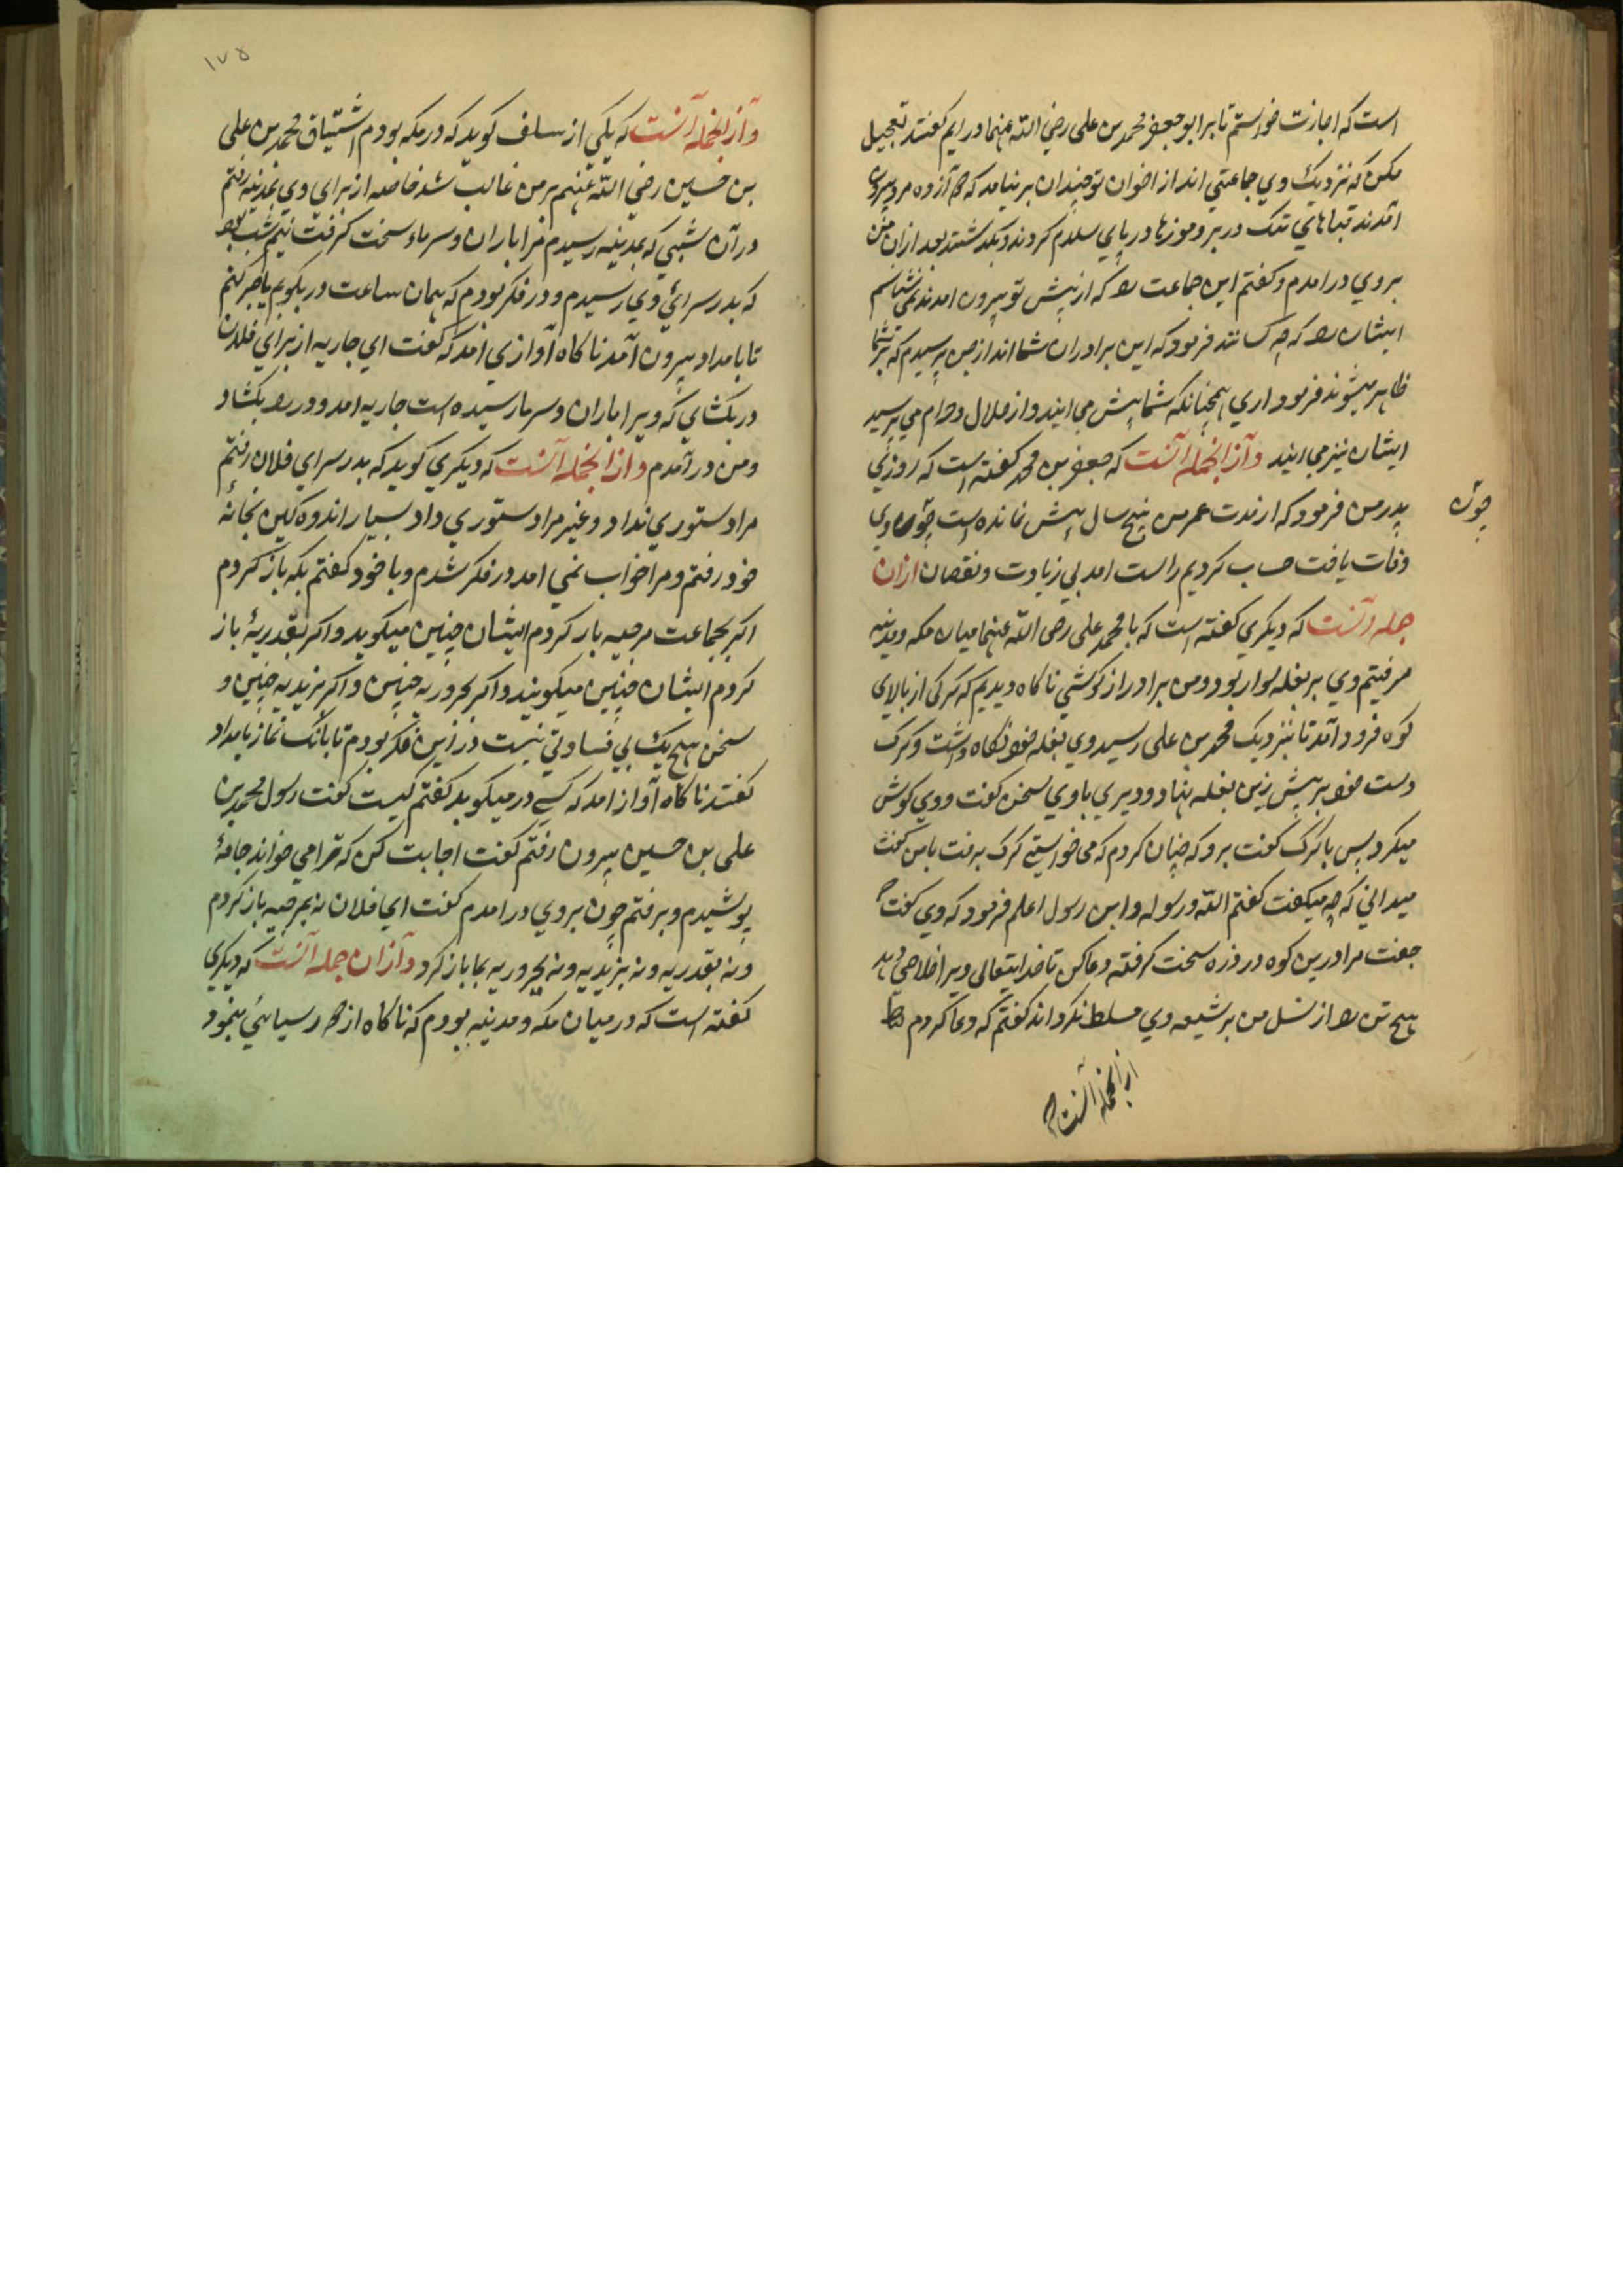 است که اجازت خواستم تا بر ابو جعفر محمد بن علی رضي الله عنهما در ایم گفتند تعجیل
مکن که نزدیک وي جماعتي اند از اخوان تو چندان بر نیامد که دوازده مرد بیرون
آمدند قباهاي تنک در بر و موزها در پاي سلام کردند و بگذشتند بعد ازان من
بروي در امدم و گفتم این جماعت را که از پیش تو بیرون امدند نمي شناسم
ایشان را که چه کسانند فرمود که این برادران شما اند از جن پرسیدم که بر شما
ظاهر میشوند فرمود اري همچنانکه شما پیش مي ایید و از حلال و حرام مي پرسید
ایشان نیز مي ایند وآز انجمله آنست که جعفر بن محمد گفته است که روزي
پدر من فرمود که از مدت عمر من پنج سال بیش نمانده است چون وي
چون
وفات یافت حساب کردیم راست امد بي زیادت و نقصان ازان
جمله آنست که دیگري گفته است که با محمد علی رضی الله عنهما میان مکه و مدینه
میرفتیم وي بر بغله سوار بود و من بر دراز گوشي ناگاه دیدیم که گرگی از بالاي
کوه فرود آمد تا نزدیک محمد بن علی رسید وي بغله خود نگاه داشت و گرگ
دست خود بر پیش زین بغله نهاد و دیري با وي سخن گفت و وي گوش
میکرد پس با گرگ گفت برو که چنان کردم که می خواستي گرگ برفت با من گفت
میداني که چه میگفت گفتم الله و رسوله و ابن رسول اعلم فرمود که وي گفت
جفت مرا درین کوه درد زه سخت گرفته دعا کن تا خدایتعالی ویرا خلاصي دهد
هیچ تن را از نسل من بر شیعه وي مسلط نگرداند گفتم که دعا کردم
از انجمله آنست
۱۷۵
وآز انجمله آنست که یکي از سلف گوید که در مکه بودم اشتیاق محمد بن علی
بن حسین رضي الله عنهم بر من غالب شد خاصه از براي وي بمدینه رفتم
در آن شبي که بمدینه رسیدم مرا باران و سرماء سخت گرفت نیم شب بود
که بدر سرائي وي رسیدم و در فکر بودم که همان ساعت در بکوبم یا صبر کنم
تا بامداد بیرون آمد ناگاه آوازي امد که گفت اي جاریه از براي فلان
در بکشاي که ویرا باران و سرما رسیده است جاریه امد و در را بکشاد
و من در آمدم و از انجمله آنست که دیگري گوید که بدر سراي فلان رفتم
مرا دستوري نداد و غیر مرا دستوري داد بسیار اندوهگین بخانه
خود رفتم و مرا خواب نمي امد در فکر شدم و با خود گفتم بکه باز گردم
اگر بجماعت مرجیه باز گردم ایشان چنین میگوید و اگر بقدریه باز
گردم ایشان چنین میگویند و اگر بحروریه چنین و اگر بزیدیه چنین و
سخن هیچ یک بي فسادي نیست درین فکر بودم تا بانگ نماز بامداد
گفتند ناگاه آواز امد که کسي در میکوبد گفتم کیست گفت رسول محمد بن
علي بن حسین بیرون رفتم گفت اجابت کن که ترا مي خواند جامه
پوشیدم و برفتم چون بروي در امدم گفت اي فلان نه بمرجیه باز گردم
و نه بقدریه و نه بزیدیه و نه بحروریه بما باز گرد وآزان جمله آنست که دیگري
گفته است که در میان مکه و مدینه بودم که ناگاه از دور سیاهي بنمود